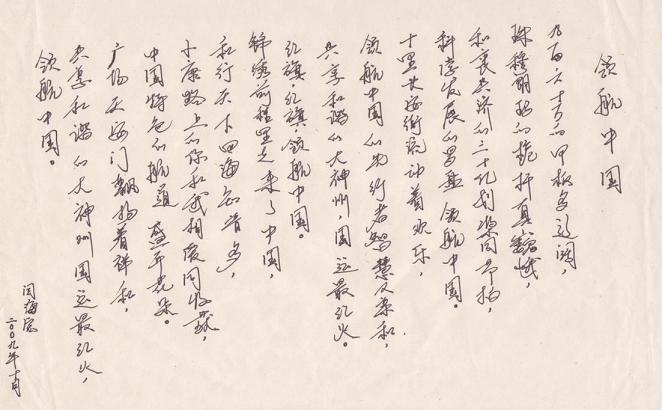 领航中国
九百六十万的甲板多辽阔，
珠穆朗玛的桅杆真巍峨，
和衷共济的三十几划桨同节拍，
科学发展的罗盘领航中国。
十里长安街流动着欢乐，
领航中国的先行者智慧又柔和，
共享和谐的大神州，国运最红火。
红旗，红旗，领航中国。
锦绣前程里走来了中国，
和行天下四海知音多，
小康路上的你和我相爱同收获，
中国特色的航道盛开花朵。
广场天安门飘扬着祥和，
共享和谐的大神州国运最红火，
领航中国。
闫海宏
二〇〇九年十月